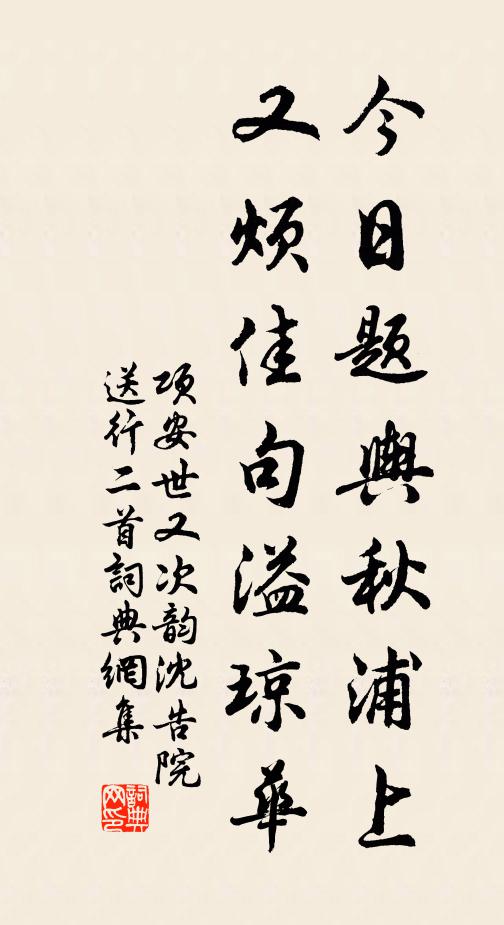 今日題輿秋浦上
又煩佳句溢琼華
項安世又次韵沈告院
送行二首詞典網集
詞典网印